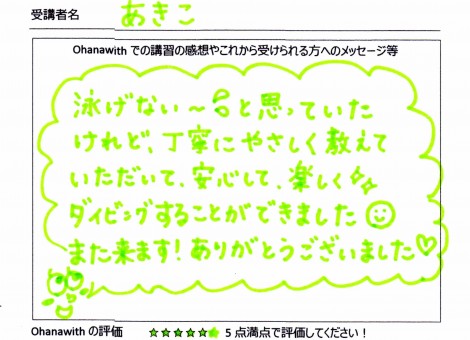 受講者名 あきこ
Ohanawith での講習の感想やこれから受けられる方へのメッセージ等
泳げない〜と思っていた
けれど、丁寧にやさしく教えて
いただいて、安心して、楽しく
ダイビングすることができました
また来ます！ありがとうございました♡
Ohanawith の評価 ☆☆☆☆☆ 5 点満点で評価してください！